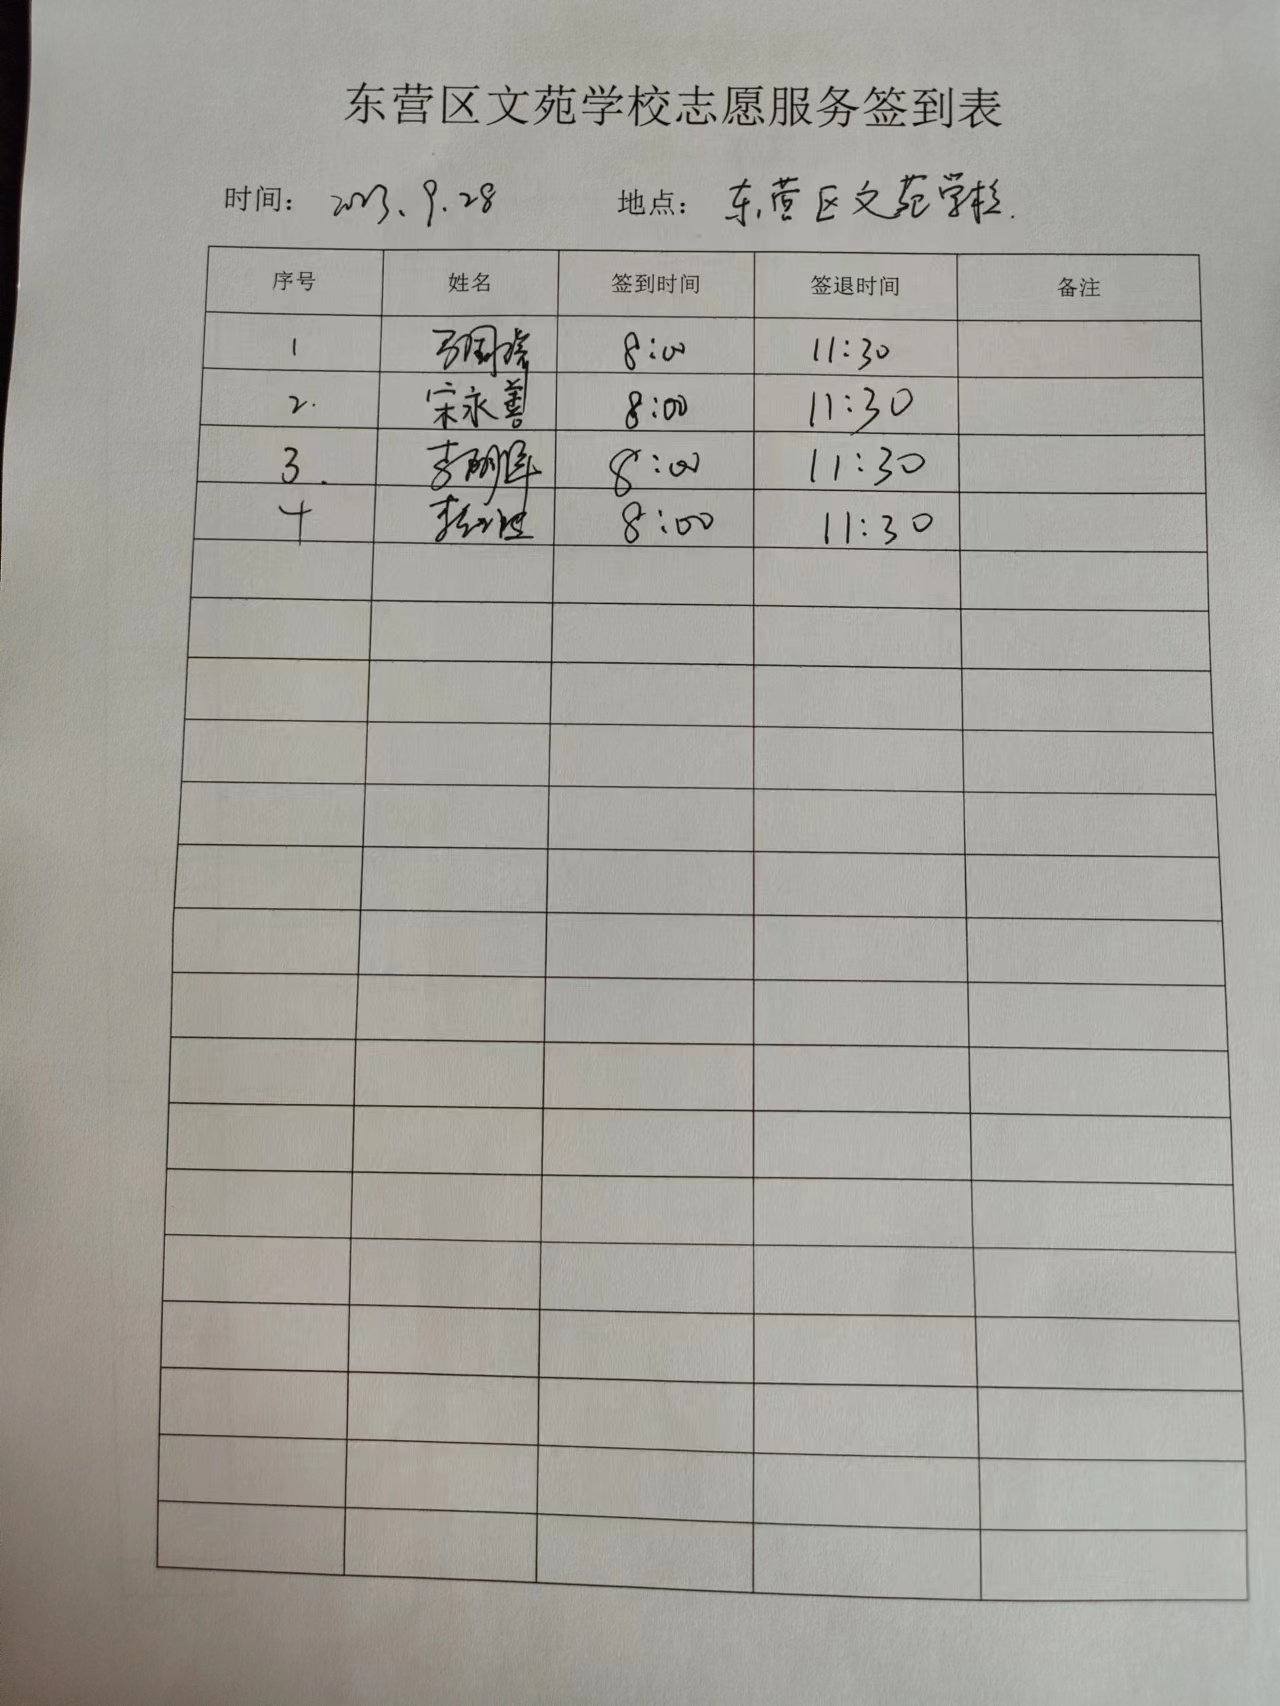 东营区文苑学校志愿服务签到表
时间: 2023.9.28 地点: 东营区文苑学校.
序号 姓名 签到时间 签退时间 备注
1 8:00 11:30
2. 宋永善 8:00 11:30
3. 8:00 11:30
4 8:00 11:30